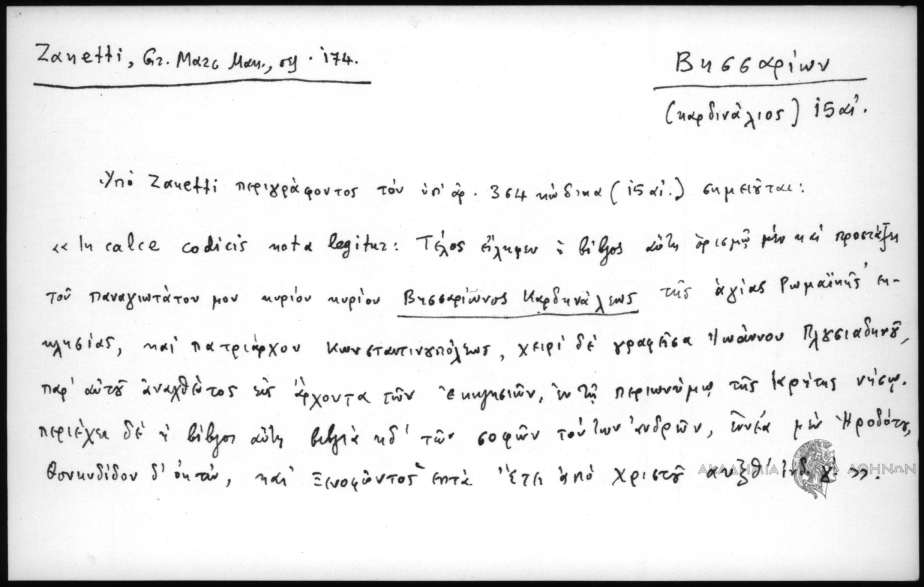 Zanetti, Gr. Marc Man., σελ. 174.
Βησσαρίων
(καρδινάλιος) 15 αἰ.
Ὑπὸ Zanetti περιγράφοντος τὸν ὑπ' ἀρ. 364 κώδικα (15 αἰ.) σημειοῦται:
«In calce codicis nota legitur: Τέλος εἴληφεν ἡ βίβλος αὕτη ὁρισμῷ μὲν καὶ προστάξῃ
τοῦ παναγιωτάτου μου κυρίου κυρίου Βησσαρίωνος Καρδηνάλεως τῆς ἁγίας Ρωμαϊκῆς ἐκ-
κλησίας, καὶ πατριάρχου Κωνσταντινουπόλεως, χειρὶ δὲ γραφεῖσα Ἰωάννου Πλουσιαδηνοῦ,
παρ' αὐτοῦ ἀναχθέντος εἰς ἄρχοντα τῶν ἐκκλησιῶν, ἐν τῇ περιωνύμῳ τῆς Κρήτης νήσῳ.
περιέχει δὲ ἡ βίβλος αὕτη βιβλία κδ' τῶν σοφῶν τούτων ἀνδρῶν, ἐννέα μὲν Ἡροδότου,
Θουκυδίδου δ' ὀκτώ, καὶ Ξενοφῶντος ἑπτά Ἔτει ἀπὸ Χριστοῦ
ΑΚΑΔΗΜΙΑ ΑΘΗΝΩΝ